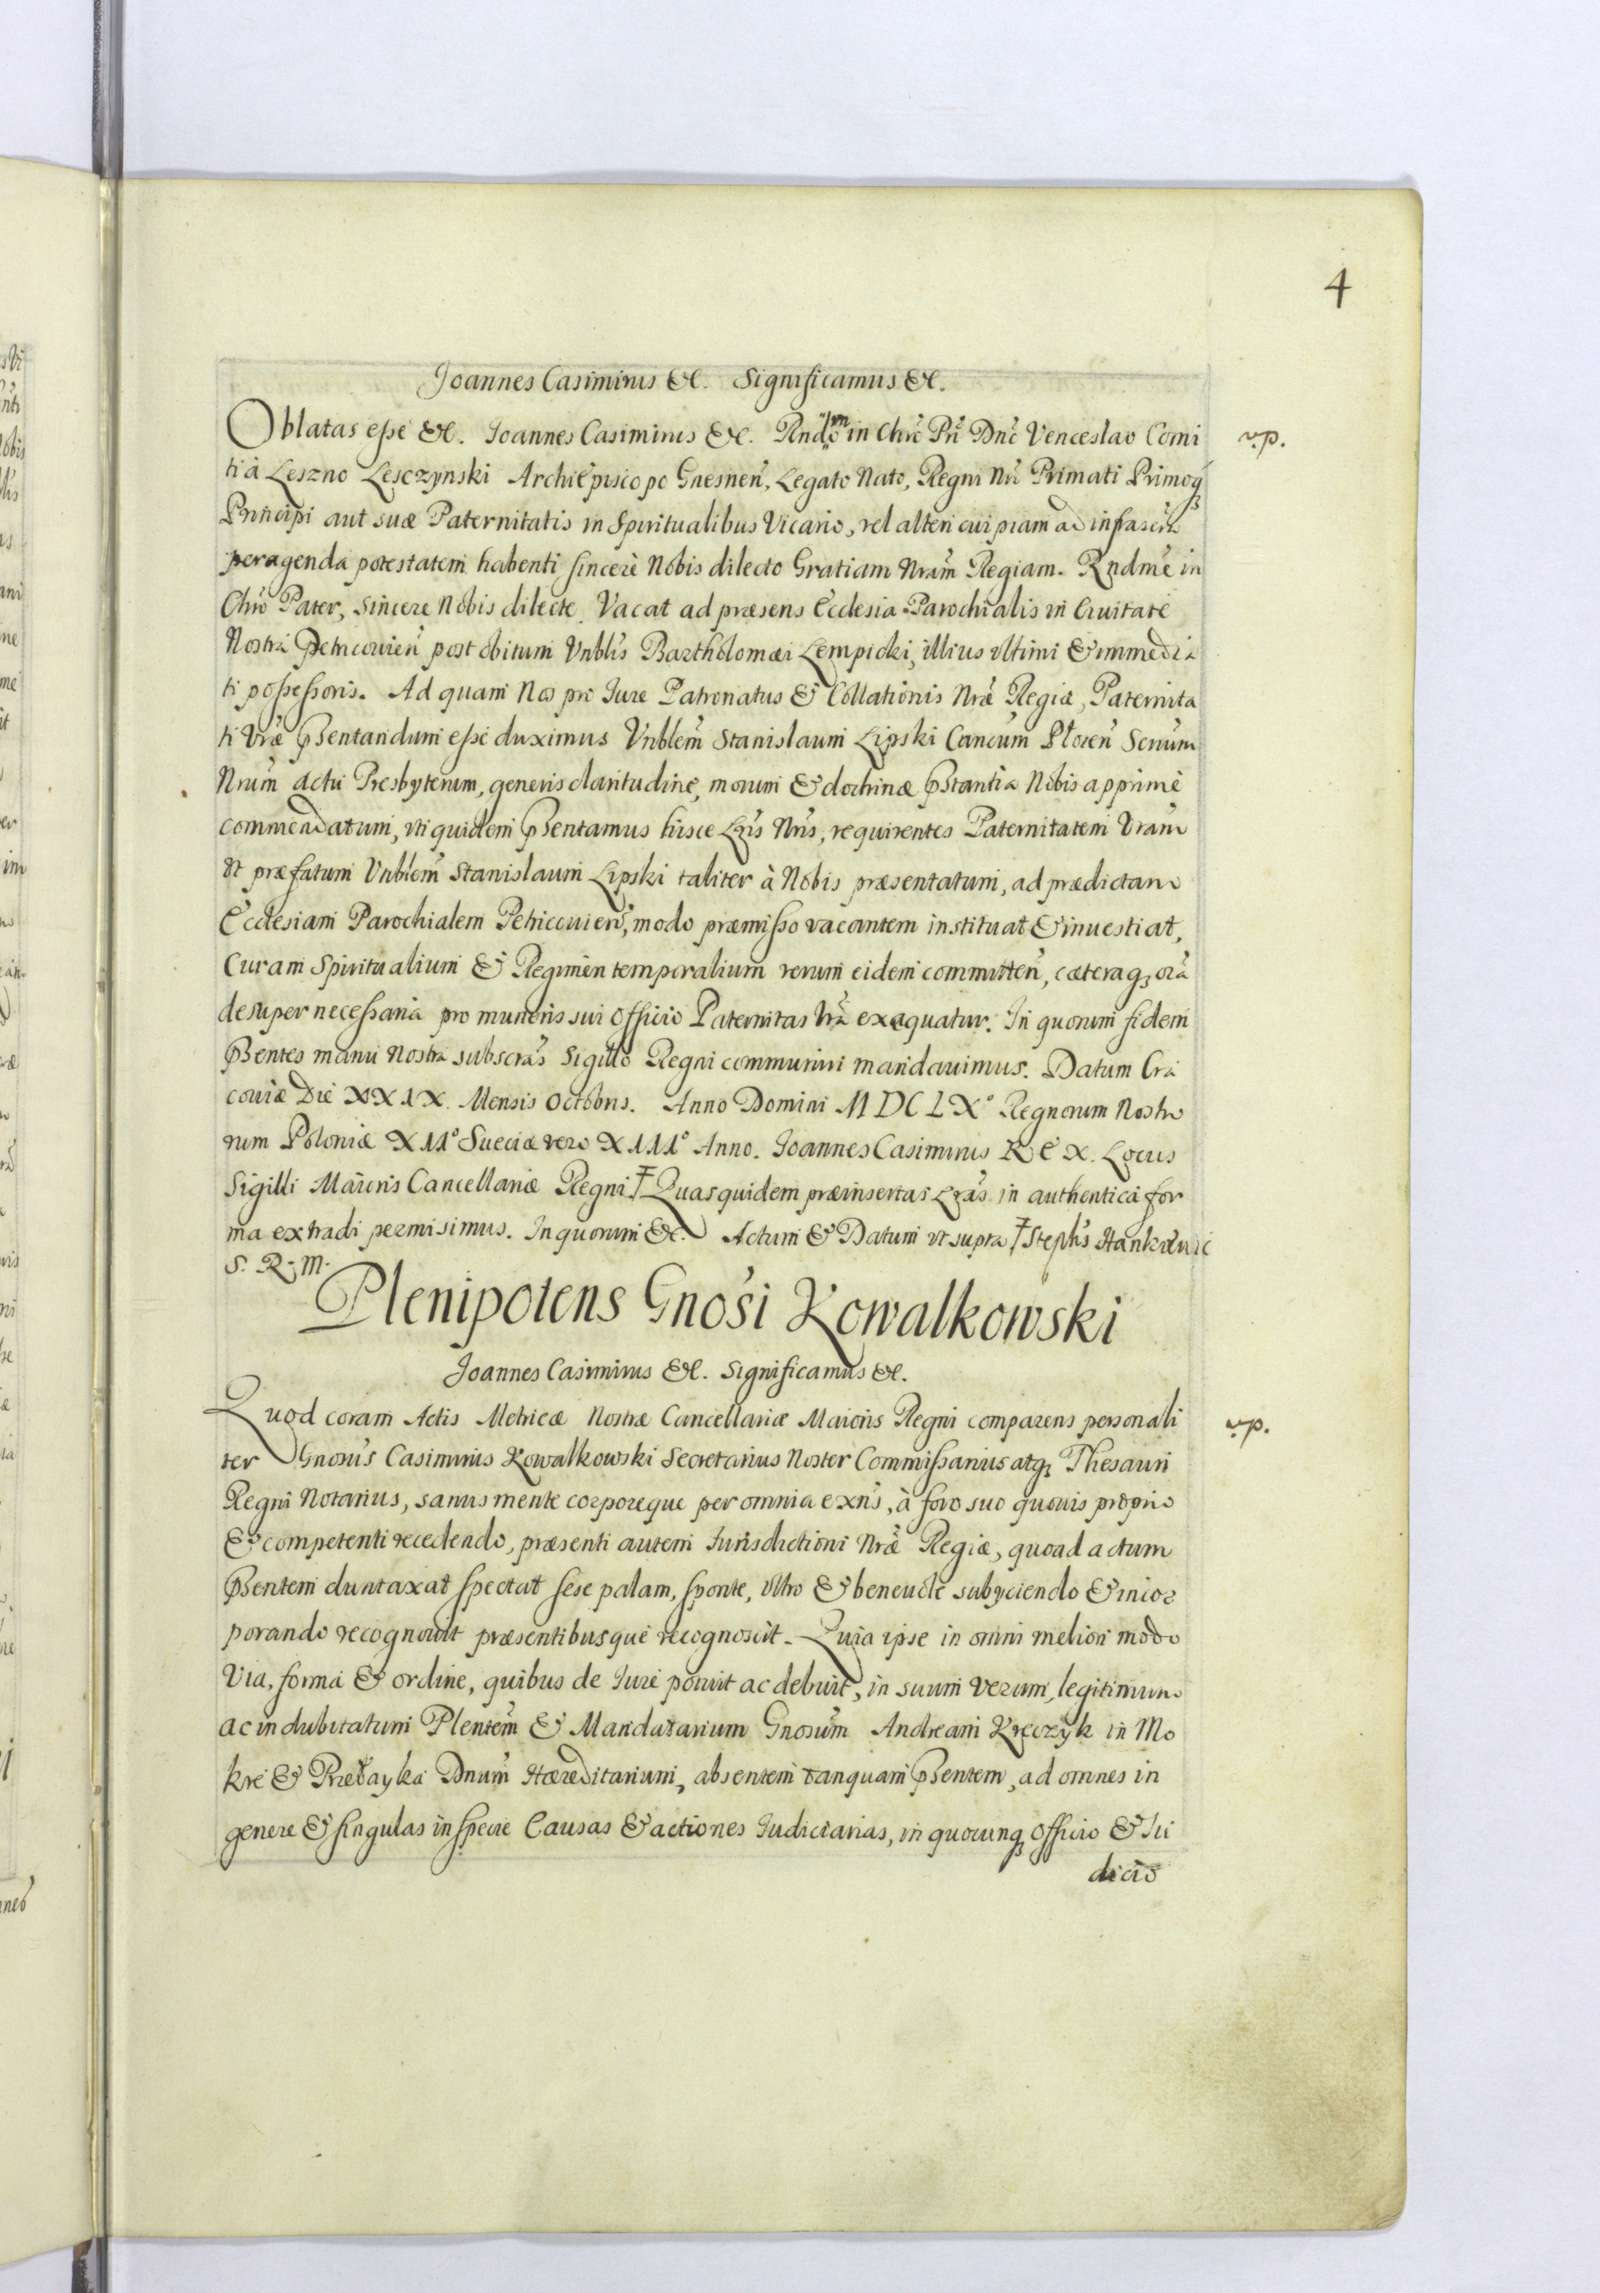 4
Joannes Casimirus &c. Significamus &c.
Oblatas esse &c. Joannes Casimirus &c. Rndo in Chro Pri Dno Venceslao Comi
v.p.
ti à Leszno Lesczynski Archiepiscopo Gnesnen, Legato Nato, Regni Nri Primati Primoq3
Principi aut suæ Paternitatis in Spiritualibus Vicario, vel alteri cuipiam ad infrascra
peragenda potestatem habenti sincerè Nobis dilecto Gratiam Nram Regiam. Rndme in
Chro Pater, sincere Nobis dilecte. Vacat ad præsens Ecclesia Parochialis in Ciuitate
Nostra Petricouien post obitum Vnblis Bartholomæi Lempicki, illius vltimi & immedia
ti possessoris. Ad quam Nos pro Jure Patronatus & Collationis Nræ Regiæ, Paternita
ti Vræ pñsentandum esse duximus Vnblem Stanislaum Lipski Cancum Plocen Scrium
Nrum actu Presbyterum, generis claritudine, morum & doctrinæ pñstantia Nobis apprimè
commendatum, vti quidem pñsentamus hisce Lris Nris, requirentes Paternitatem Vram
vt præfatum Vnblem Stanislaum Lipski taliter à Nobis præsentatum, ad prædictam
Ecclesiam Parochialem Petricouien, modo præmisso vacantem instituat & inuestiat,
Curam Spiritualium & Regimen temporalium rerum eidem committen, cæteraq3 oia
desuper necessaria pro muneris sui Officio Paternitas Vra exequatur. In quorum fidem
pñsentes manu Nostra subscras Sigillo Regni communiri mandauimus. Datum Cra
couiæ Die XXIX. Mensis Octobris. Anno Domini MDCLX° Regnorum Nostro
rum Poloniæ XII° Sueciæ vero XIII° Anno. Joannes Casimirus REX. Locus
Sigilli Maioris Cancellariæ Regni Quas quidem præinsertas Lras in authentica for
ma extradi permisimus. In quorum &c. Actum & Datum vt supra Stephs Hankiewic
S. R. M.
Plenipotens Gnosi Kowalkowski
Joannes Casimirus &c. Significamus &c.
Quod coram Actis Metricæ Nostræ Cancellariæ Maioris Regni comparens personali
v.p.
ter Gnosus Casimirus Kowalkowski Secretarius Noster Commissarius atq3 Thesauri
Regni Notarius, sanus mente corporeque per omnia exns, à foro suo quouis proprio
& competenti recedendo, præsenti autem Jurisdictioni Nræ Regiæ, quoad actum
pñsentem duntaxat spectat sese palam, sponte, vltro & beneuole subyciendo & incor
porando recognouit præsentibusque recognoscit. Quia ipse in omni meliori modo
Via, forma & ordine, quibus de Jure potuit ac debuit, in suum verum, legitimum
ac indubitatum Plentem & Mandatarium Gnosum Andream Kręczyk in Mo
kre & Przełayka Dnum Hæreditarium, absentem tanquam pñsentem, ad omnes in
genere & singulas in specie Causas & actiones Judiciarias, in quocunq3 Officio & Ju
dicio